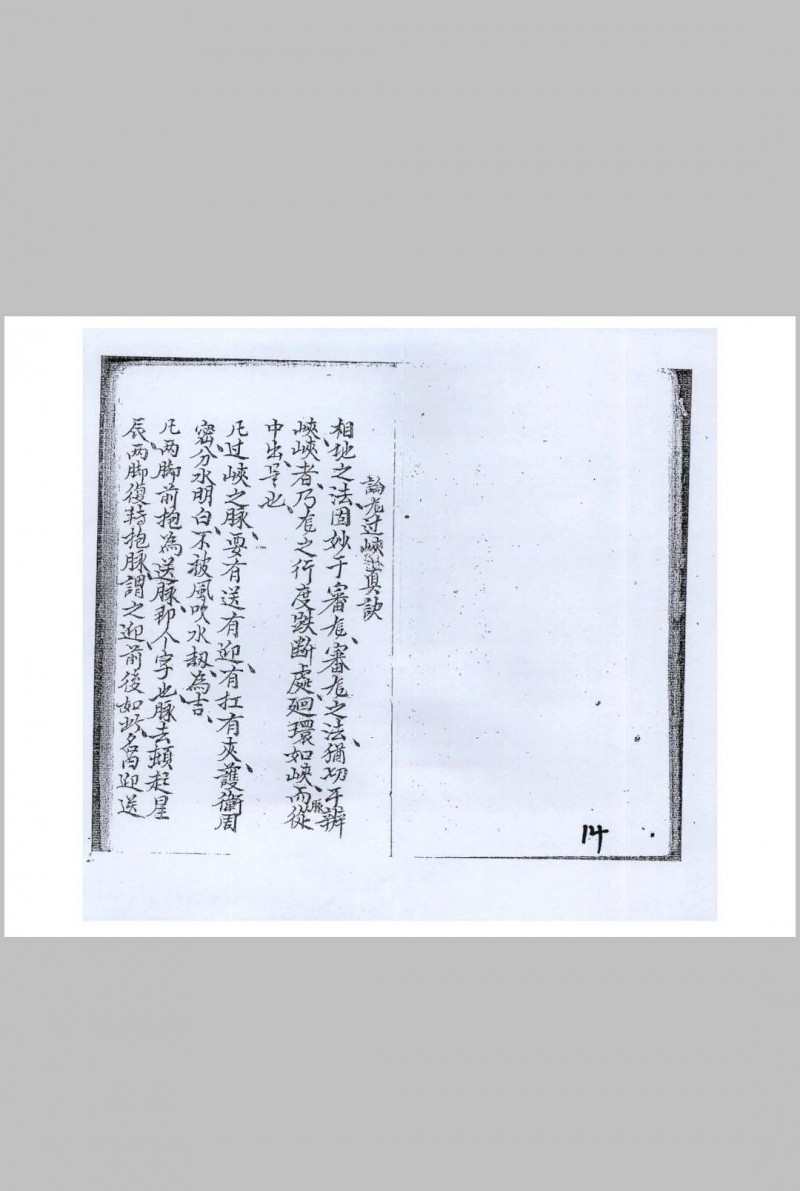 論龙过峽真訣
相地之法、固妙于審龙、審龙之法、猶切乎辨
峽、峽者、乃龙之行度跌断處、廻環如峽、而脈從
中出是也、
凡过峽之脉、要有送有迎、有扛有夾、護衛周
密、分水明白、不被風吹水刼、為吉、
凡两脚前抱為送脉、即个字也、脉去頓起星
辰、两脚復轉抱脉、謂之迎、前後如此、名為迎送
14